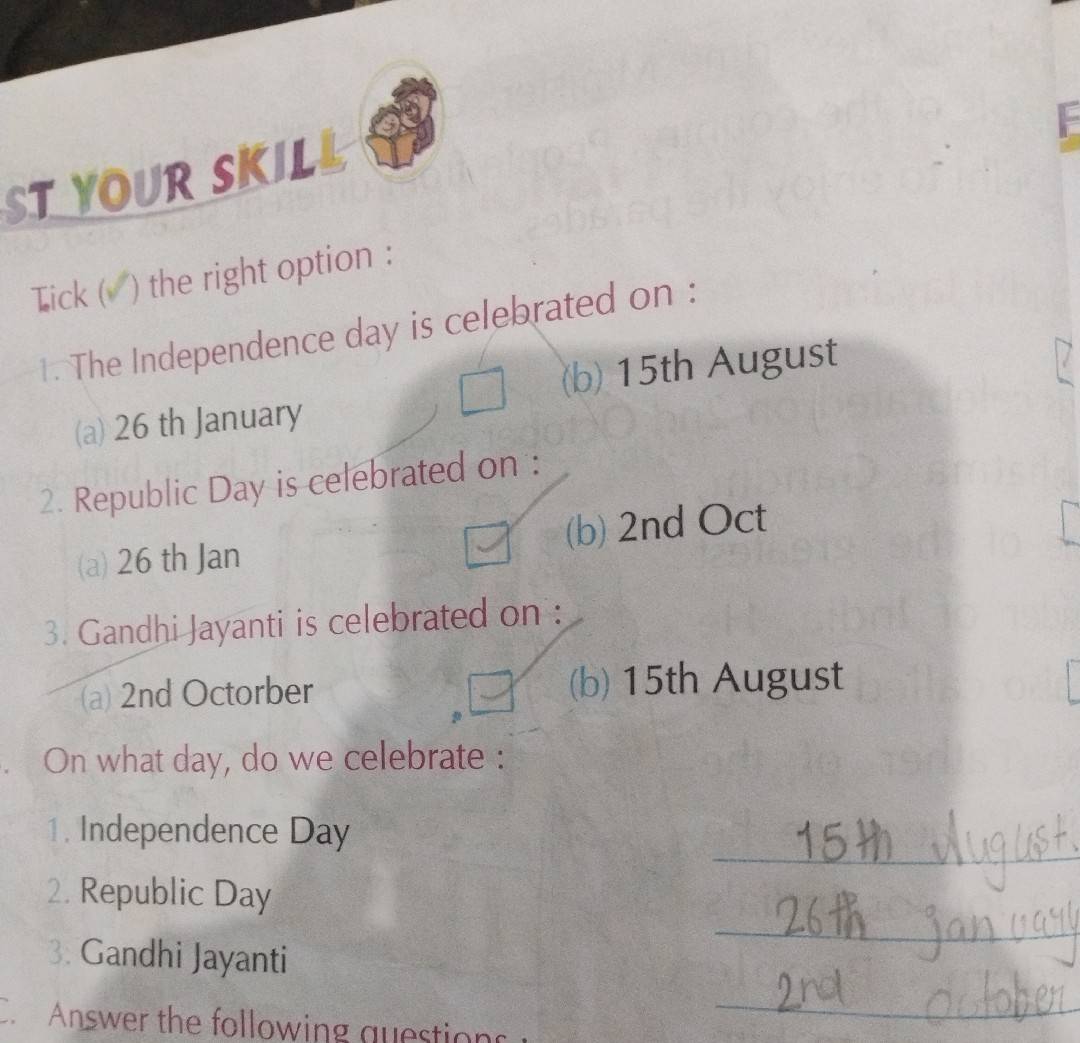 ST YOUR SKILL
Tick (✓) the right option :
1. The Independence day is celebrated on :
(a) 26 th January (b) 15th August
2. Republic Day is celebrated on :
(a) 26 th Jan (b) 2nd Oct
3. Gandhi Jayanti is celebrated on :
(a) 2nd Octorber (b) 15th August
On what day, do we celebrate :
1. Independence Day 15th August.
2. Republic Day 26th January
3. Gandhi Jayanti 2nd October
C. Answer the following questions :